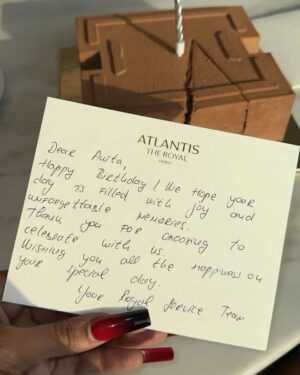 ATLANTIS
THE ROYAL
DUBAI
Dear Anita,
Happy Birthday! We hope your
day is filled with joy and
unforgettable memories.
Thank you for choosing to
celebrate with us.
Wishing you all the happiness on
your special day.
Your Royal Service Team